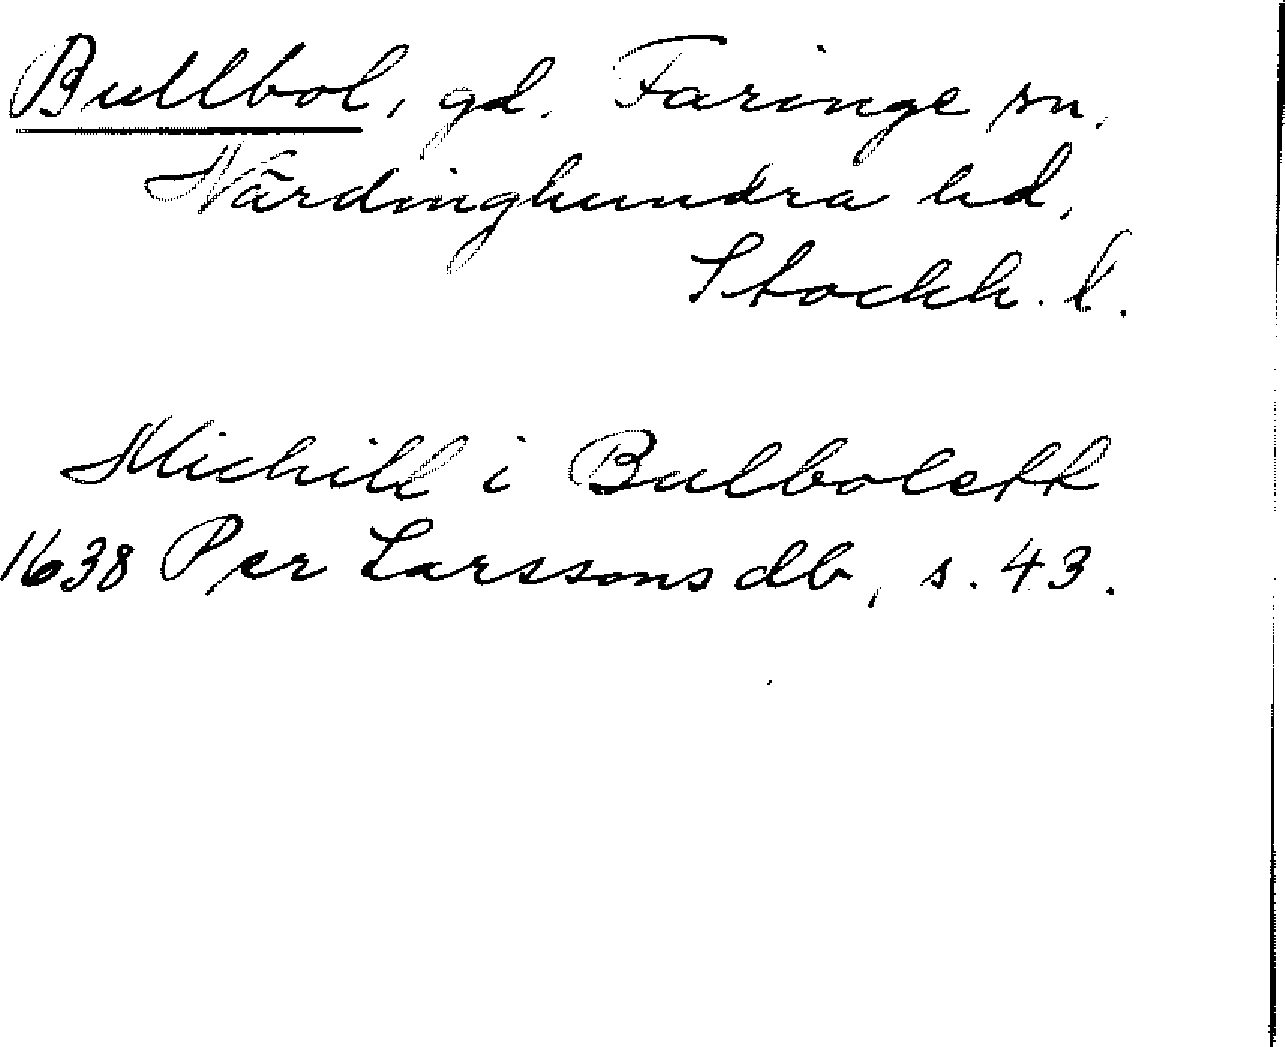 Bullbol, gd. Faringe sn.
Närdinghundra hd.
Stockh. l.
Michill i Bulbolett
1638 Per Larssons db, s. 43.